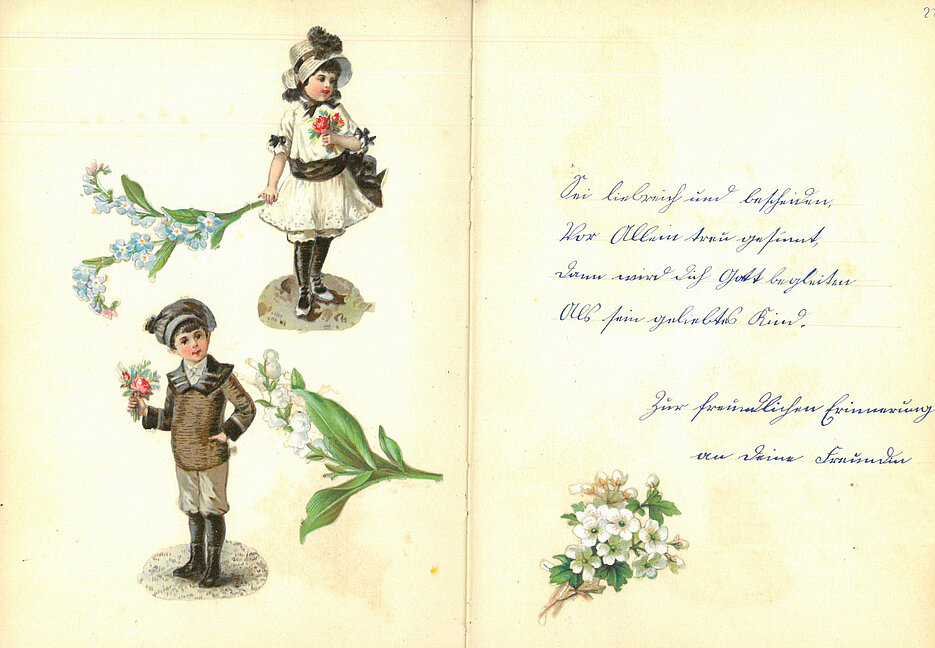 Sei liebreich und bescheiden,
Vor Allem treu gesinnt,
Dann wird dich Gott begleiten
Als sein geliebtes Kind.
Zur freundlichen Erinnerung
an Deine Freundin